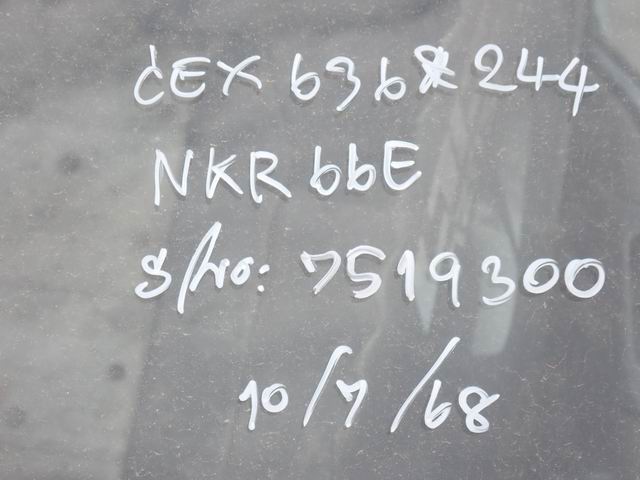 CEX 636*244
NKR 66E
S/No: 7519300
10/7/68